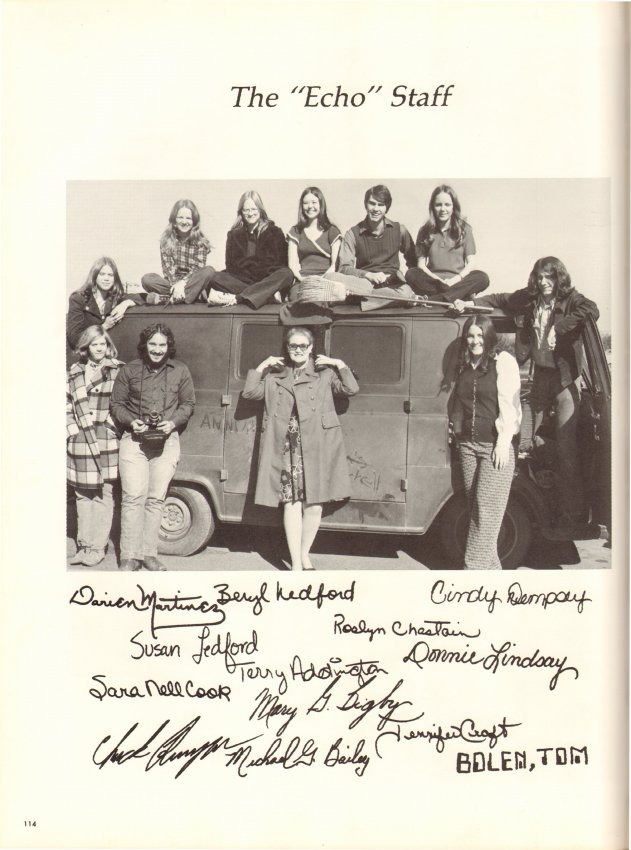 The "Echo" Staff
Darien Martinez Beryl Ledford Cindy Dempsay
Susan Ledford Roslyn Chastain
Terry Addington Donnie Lindsay
Sara Nell Cook Mary G. Bigby
Jennifer Craft
Chuck Michael G. Bailey BOLEN, TOM
114